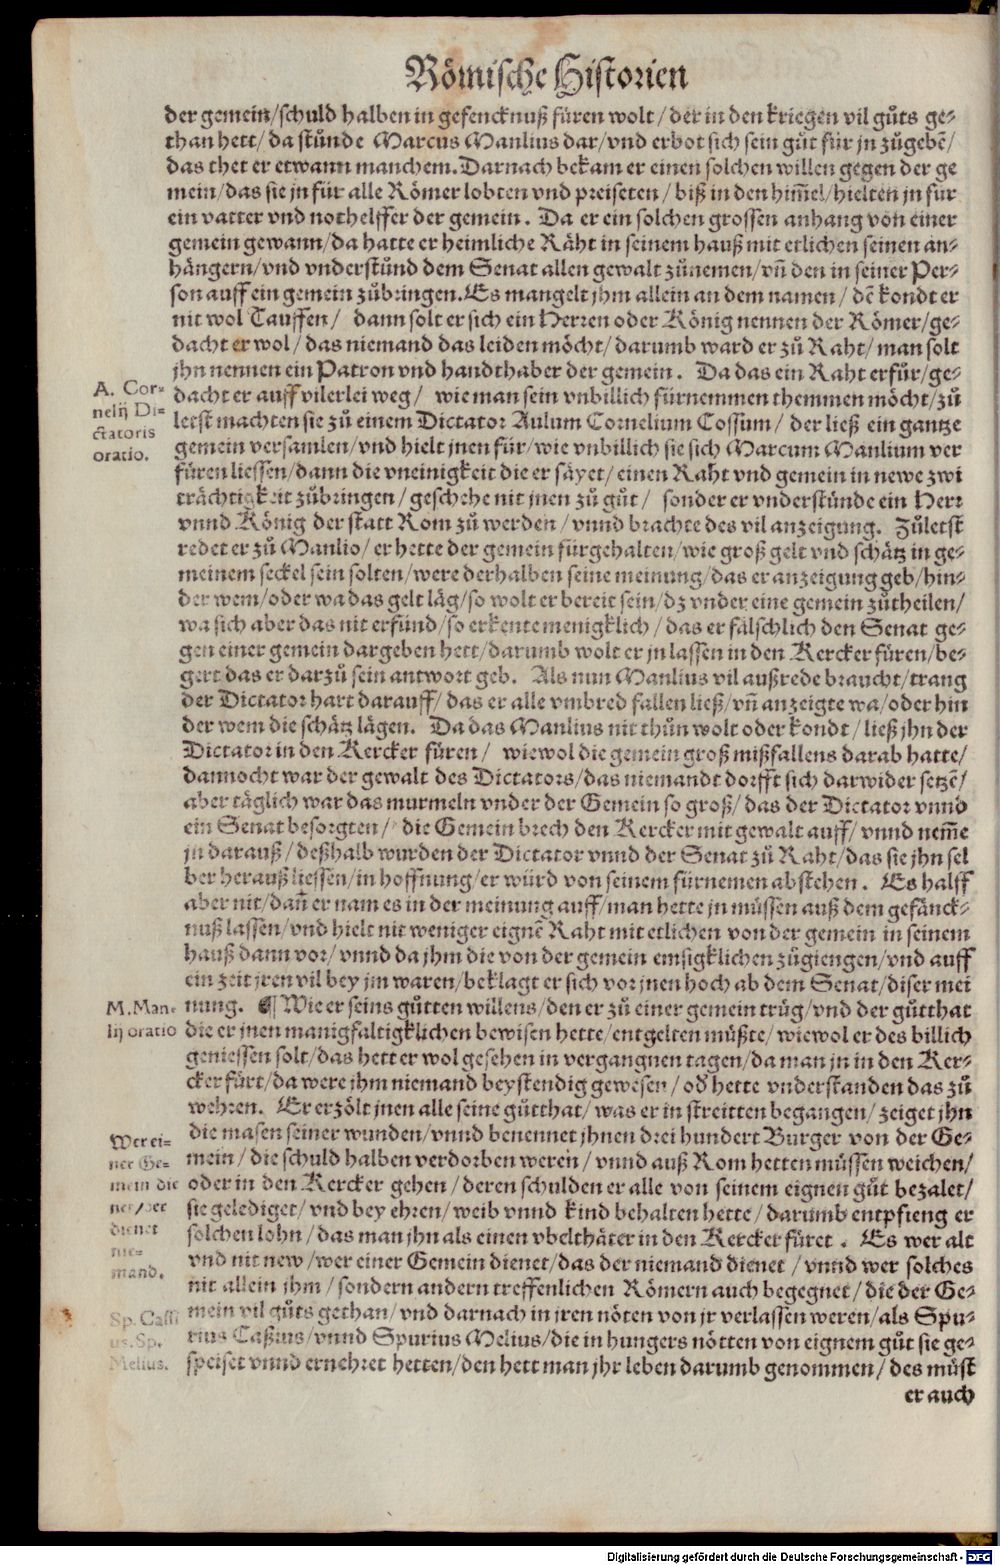 Römische Historien
der gemein/schuld halben in gefencknuß füren wolt/der in den kriegen vil gůts ge-
than hett/da stůnde Marcus Manlius dar/vnd erbot sich sein gůt für jn zůgebẽ/
das thet er etwann manchem. Darnach bekam er einen solchen willen gegen der ge
mein/das sie jn für alle Römer lobten vnd preiseten/biß in den him̃el/hielten jn für
ein vatter vnd nothelffer der gemein. Da er ein solchen grossen anhang von einer
gemein gewann/da hatte er heimliche Räht in seinem hauß mit etlichen seinen an-
hängern/vnd vnderstůnd dem Senat allen gewalt zůnemen/vñ den in seiner Per-
son auff ein gemein zůbringen. Es mangelt jhm allein an dem namen/dẽ kondt er
nit wol Tauffen/ dann solt er sich ein Herren oder König nennen der Römer/ge-
dacht er wol/das niemand das leiden möcht/darumb ward er zů Raht/man solt
jhn nennen ein Patron vnd handthaber der gemein. Da das ein Raht erfůr/ge-
A. Cor-
nelij Di-
ctatoris
oratio.
dacht er auff vilerlei weg/ wie man sein vnbillich fürnemmen themmen möcht/zů
letst machten sie zů einem Dictator Aulum Cornelium Cossum/ der ließ ein gantze
gemein versamlen/vnd hielt jnen für/wie vnbillich sie sich Marcum Manlium ver
füren liessen/dann die vneinigkeit die er säyet/einen Raht vnd gemein in newe zwi
trächtigkeit zůbringen/geschehe nit jnen zů gůt/ sonder er vnderstůnde ein Herr
vnnd König der statt Rom zů werden/vnnd brachte des vil anzeigung. Zůletst
redet er zů Manlio/er hette der gemein fürgehalten/wie groß gelt vnd schätz in ge-
meinem seckel sein solten/were derhalben seine meinung/das er anzeigung geb/hin-
der wem/oder wa das gelt läg/so wolt er bereit sein/dz vnder eine gemein zůtheilen/
wa sich aber das nit erfünd/so erkente menigklich/das er fälschlich den Senat ge-
gen einer gemein dargeben hett/darumb wolt er jn lassen in den Kercker füren/be-
gert das er darzů sein antwort geb. Als nun Manlius vil außrede braucht/trang
der Dictator hart darauff/das er alle vmbred fallen ließ/vñ anzeigte wa/oder hin
der wem die schätz lägen. Da das Manlius nit thůn wolt oder kondt/ließ jhn der
Dictator in den Kercker füren/ wiewol die gemein groß mißfallens darab hatte/
dannocht war der gewalt des Dictators/das niemandt dorfft sich darwider setzẽ/
aber täglich war das murmeln vnder der Gemein so groß/das der Dictator vnnd
ein Senat besorgten/ die Gemein brech den Kercker mit gewalt auff/vnnd nem̃e
jn darauß/deßhalb wurden der Dictator vnnd der Senat zů Raht/das sie jhn sel
ber herauß liessen/in hoffnung/er würd von seinem fürnemen abstehen. Es halff
aber nit/dañ er nam es in der meinung auff/man hette jn müssen auß dem gefänck-
nuß lassen/vnd hielt nit weniger eignẽ Raht mit etlichen von der gemein in seinem
hauß dann vor/vnnd da jhm die von der gemein emsigklichen zůgiengen/vnd auff
ein zeit jren vil bey jm waren/beklagt er sich vor jnen hoch ab dem Senat/diser mei
M. Man-
lij oratio
nung. ¶ Wie er seins gůtten willens/den er zů einer gemein trůg/vnd der gůtthat
die er jnen manigfaltigklichen bewisen hette/entgelten müßte/wiewol er des billich
geniessen solt/das hett er wol gesehen in vergangnen tagen/da man jn in den Ker-
cker fůrt/da were jhm niemand beystendig gewesen/od' hette vnderstanden das zů
wehren. Er erzölt jnen alle seine gůtthat/was er in streitten begangen/zeiget jhn
Wer ei-
ner Ge-
mein die
net/ver
dienet
nie-
mand.
die masen seiner wunden/vnnd benennet jhnen drei hundert Burger von der Ge-
mein/die schuld halben verdorben weren/vnnd auß Rom hetten müssen weichen/
oder in den Kercker gehen/deren schulden er alle von seinem eignen gůt bezalet/
sie gelediget/vnd bey ehren/weib vnnd kind behalten hette/darumb entpfieng er
solchen lohn/das man jhn als einen vbelthäter in den Kercker füret. Es wer alt
vnd nit new/wer einer Gemein dienet/das der niemand dienet/vnnd wer solches
nit allein jhm/sondern andern treffenlichen Römern auch begegnet/die der Ge-
Sp. Cassi
us. Sp.
Melius.
mein vil gůts gethan/vnd darnach in jren nöten von jr verlassen weren/als Spu-
rius Caßius/vnnd Spurius Melius/die in hungers nötten von eignem gůt sie ge-
speiset vnnd ernehret hetten/den hett man jhr leben darumb genommen/des müst
er auch
Digitalisierung gefördert durch die Deutsche Forschungsgemeinschaft - DFG